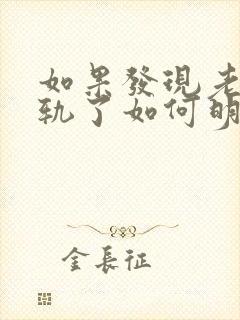 如果發現老
軌了如何明
金長征